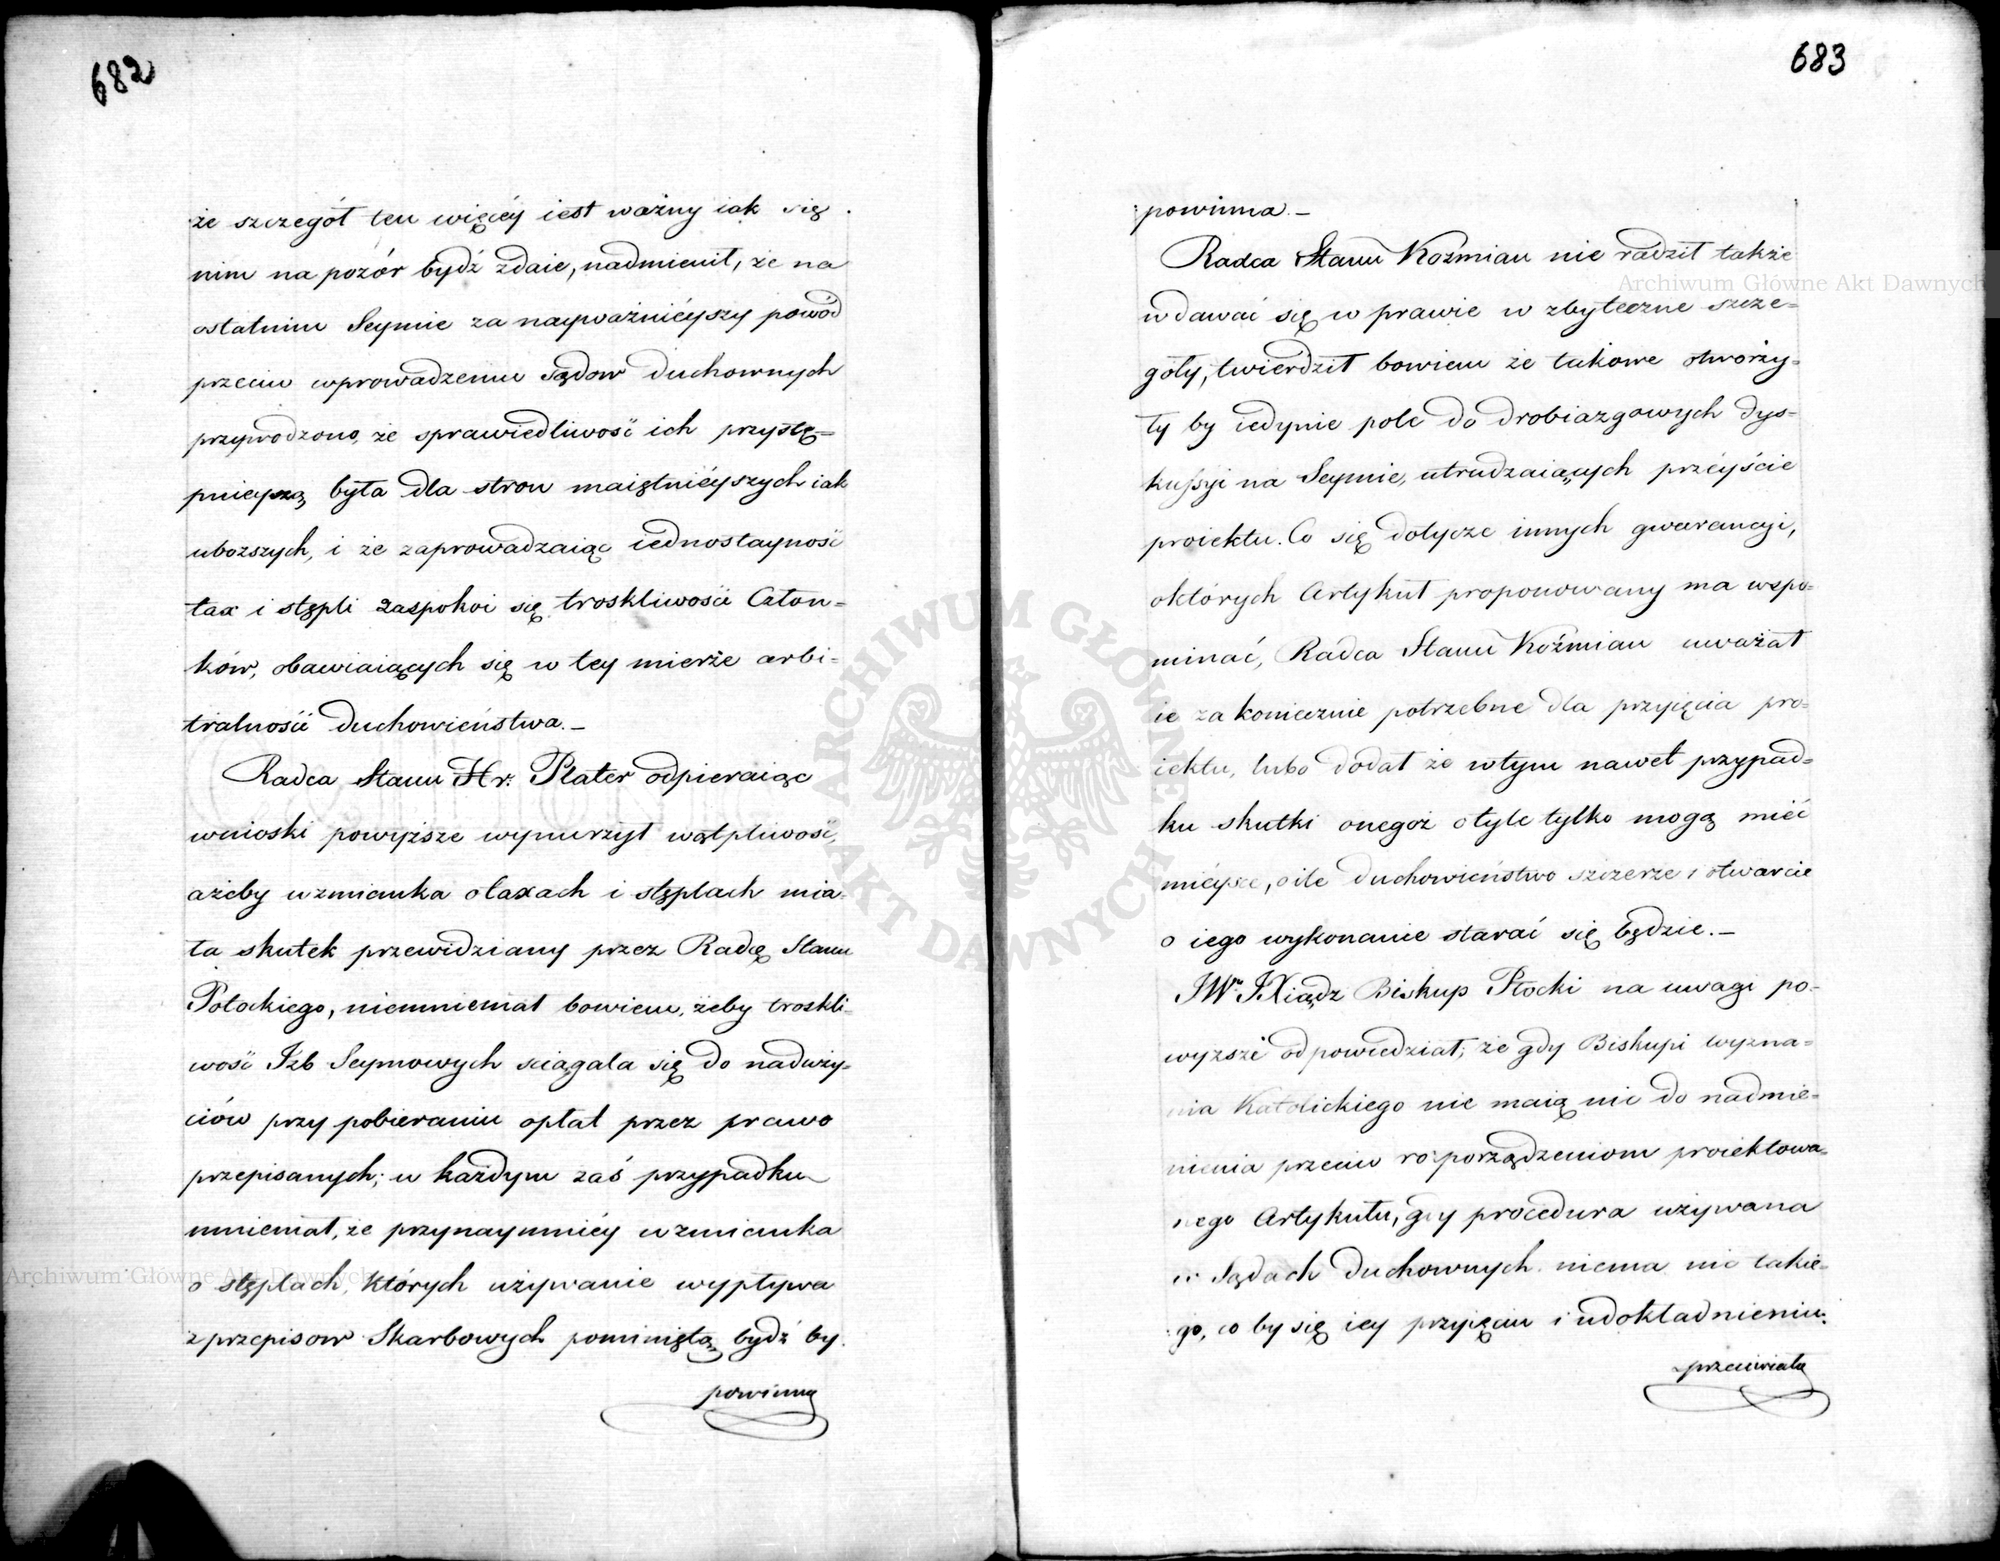 682
że szczegół ten więcéy iest ważny iak się
nim na pozór bydź zdaie, nadmienił, że na
ostatnim Seymie za nayważniéyszy powód
przeciw wprowadzeniu sądow duchownych
przywodzono, że sprawiedliwość ich przystę=
pnieyszą była dla stron maiętniéyszych iak
uboższych, i że zaprowadzaiąc iednostayność
tax i stępli zaspokoi się troskliwość Człon=
ków, obawiaiących się w tey mierze arbi=
tralności duchowieństwa._
Radca Stanu Hr: Plater odpieraiąc
wnioski powyższe wynurzył wątpliwość,
ażeby wzmianka o taxach i stęplach mia=
ła skutek przewidziany przez Radcę Stanu
Potockiego, niemniemał bowiem, żeby troskli=
wość Izb Seymowych sciągała się do naduży=
ciów przy pobieraniu opłat przez prawo
przepisanych; w każdym zaś przypadku
mniemał, że przynaymniéy wzmianka
o stęplach, których używanie wypływa
z przepisow Skarbowych pominiętą bydź by
powinna
683
powinna._
Radca Stanu Koźmian nie radził także
wdawać się w prawie w zbyteczne szcze=
goły, twierdził bowiem że takowe otworzy=
ły by iedynie pole do drobiazgowych dys=
kussyi na Seymie, utrudzaiących przéyście
proiektu. Co się dotycze innych gwarancyi,
o których Artykuł proponowany ma wspo=
minać, Radca Stanu Koźmian uważał
ie za koniecznie potrzebne dla przyięcia pro=
iektu, lubo dodał że w tym nawet przypad=
ku skutki onegoż o tyle tylko mogą mieć
mieysce, o ile duchowieństwo szczerze i otwarcie
o iego wykonanie starać się będzie._
JW. JXiądz Biskup Płocki na uwagi po=
wyższe odpowiedział; że gdy Biskupi wyzna=
nia Katolickiego nie maią nic do nadmie=
nienia przeciw rosporządzeniom proiektowa=
nego Artykułu, gdy procedura używana
w Sądach duchownych niema nic takie=
go, co by się iey przyięciu i udokładnieniu
przeciwiało
Archiwum Główne Akt Dawnych
Archiwum Główne Akt Dawnych
ARCHIWUM GŁÓWNE AKT DAWNYCH